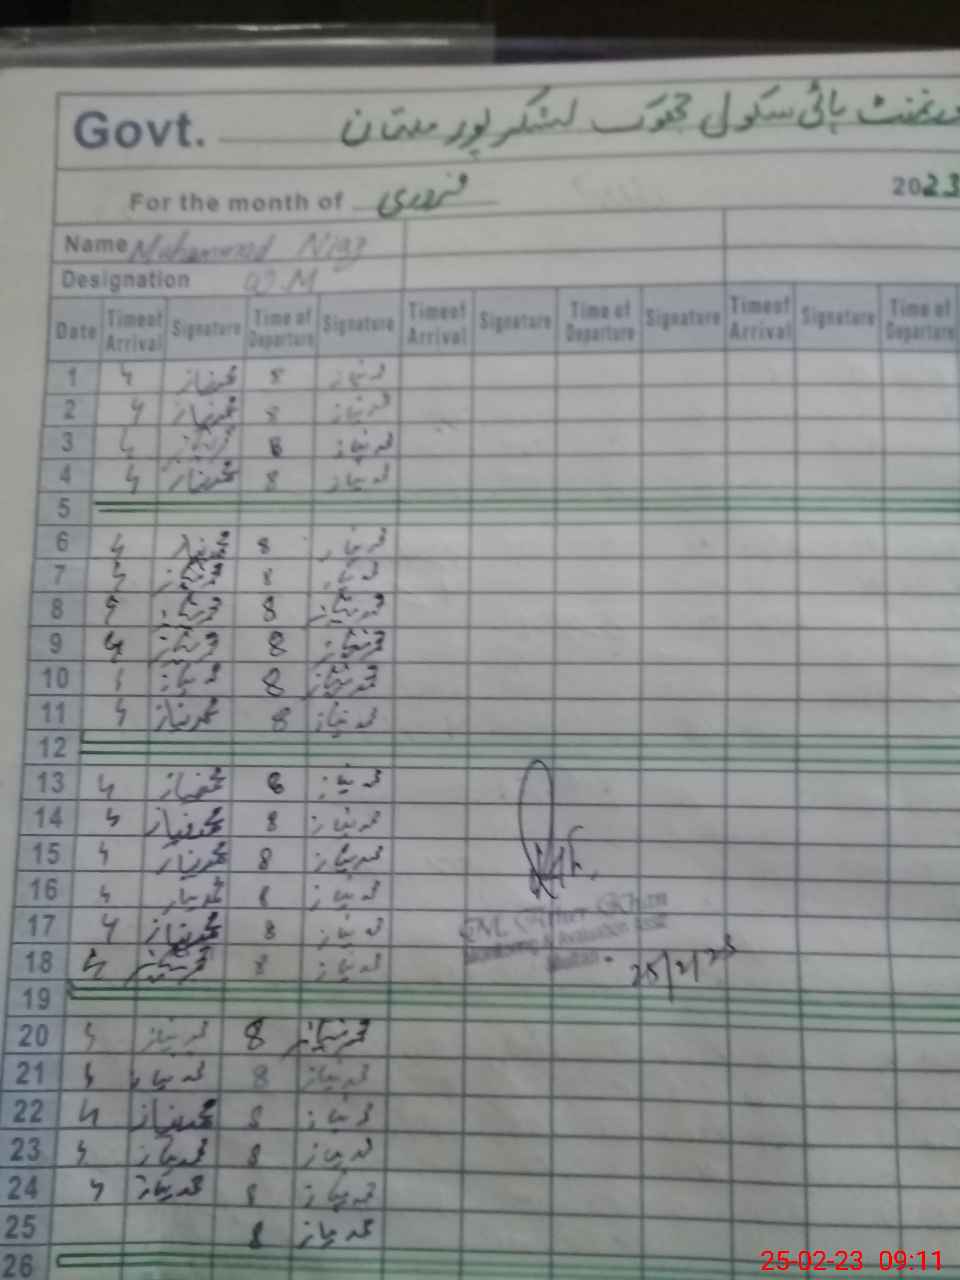 Govt. گورنمنٹ ہائی سکول جھوک لشکر پور ملتان
For the month of فروری 2023
Name Muhammad Niaz
Designation
Date Time of Arrival Signature Time of Departure Signature Time of Arrival Signature Time of Departure Signature Time of Arrival Signature Time of Departure
1 4 محمد نیاز 8 محمد نیاز
2 4 محمد نیاز 8 محمد نیاز
3 4 محمد نیاز 8 محمد نیاز
4 4 محمد نیاز 8 محمد نیاز
5
6 4 محمد نیاز 8 محمد نیاز
7 4 محمد نیاز 8 محمد نیاز
8 4 محمد نیاز 8 محمد نیاز
9 4 محمد نیاز 8 محمد نیاز
10 محمد نیاز 8 محمد نیاز
11 4 محمد نیاز 8 محمد نیاز
12
13 4 محمد نیاز 8 محمد نیاز
14 4 محمد نیاز 8 محمد نیاز
15 4 محمد نیاز 8 محمد نیاز
16 4 محمد نیاز 8 محمد نیاز
17 4 محمد نیاز 8 محمد نیاز
18 4 محمد نیاز 8 محمد نیاز
Khan
Monitoring & Evaluation
Multan
25/2/23
19
20 4 محمد نیاز 8 محمد نیاز
21 4 محمد نیاز 8 محمد نیاز
22 4 محمد نیاز 8 محمد نیاز
23 4 محمد نیاز 8 محمد نیاز
24 4 محمد نیاز 8 محمد نیاز
25 8 محمد نیاز
26
25-02-23 09:11